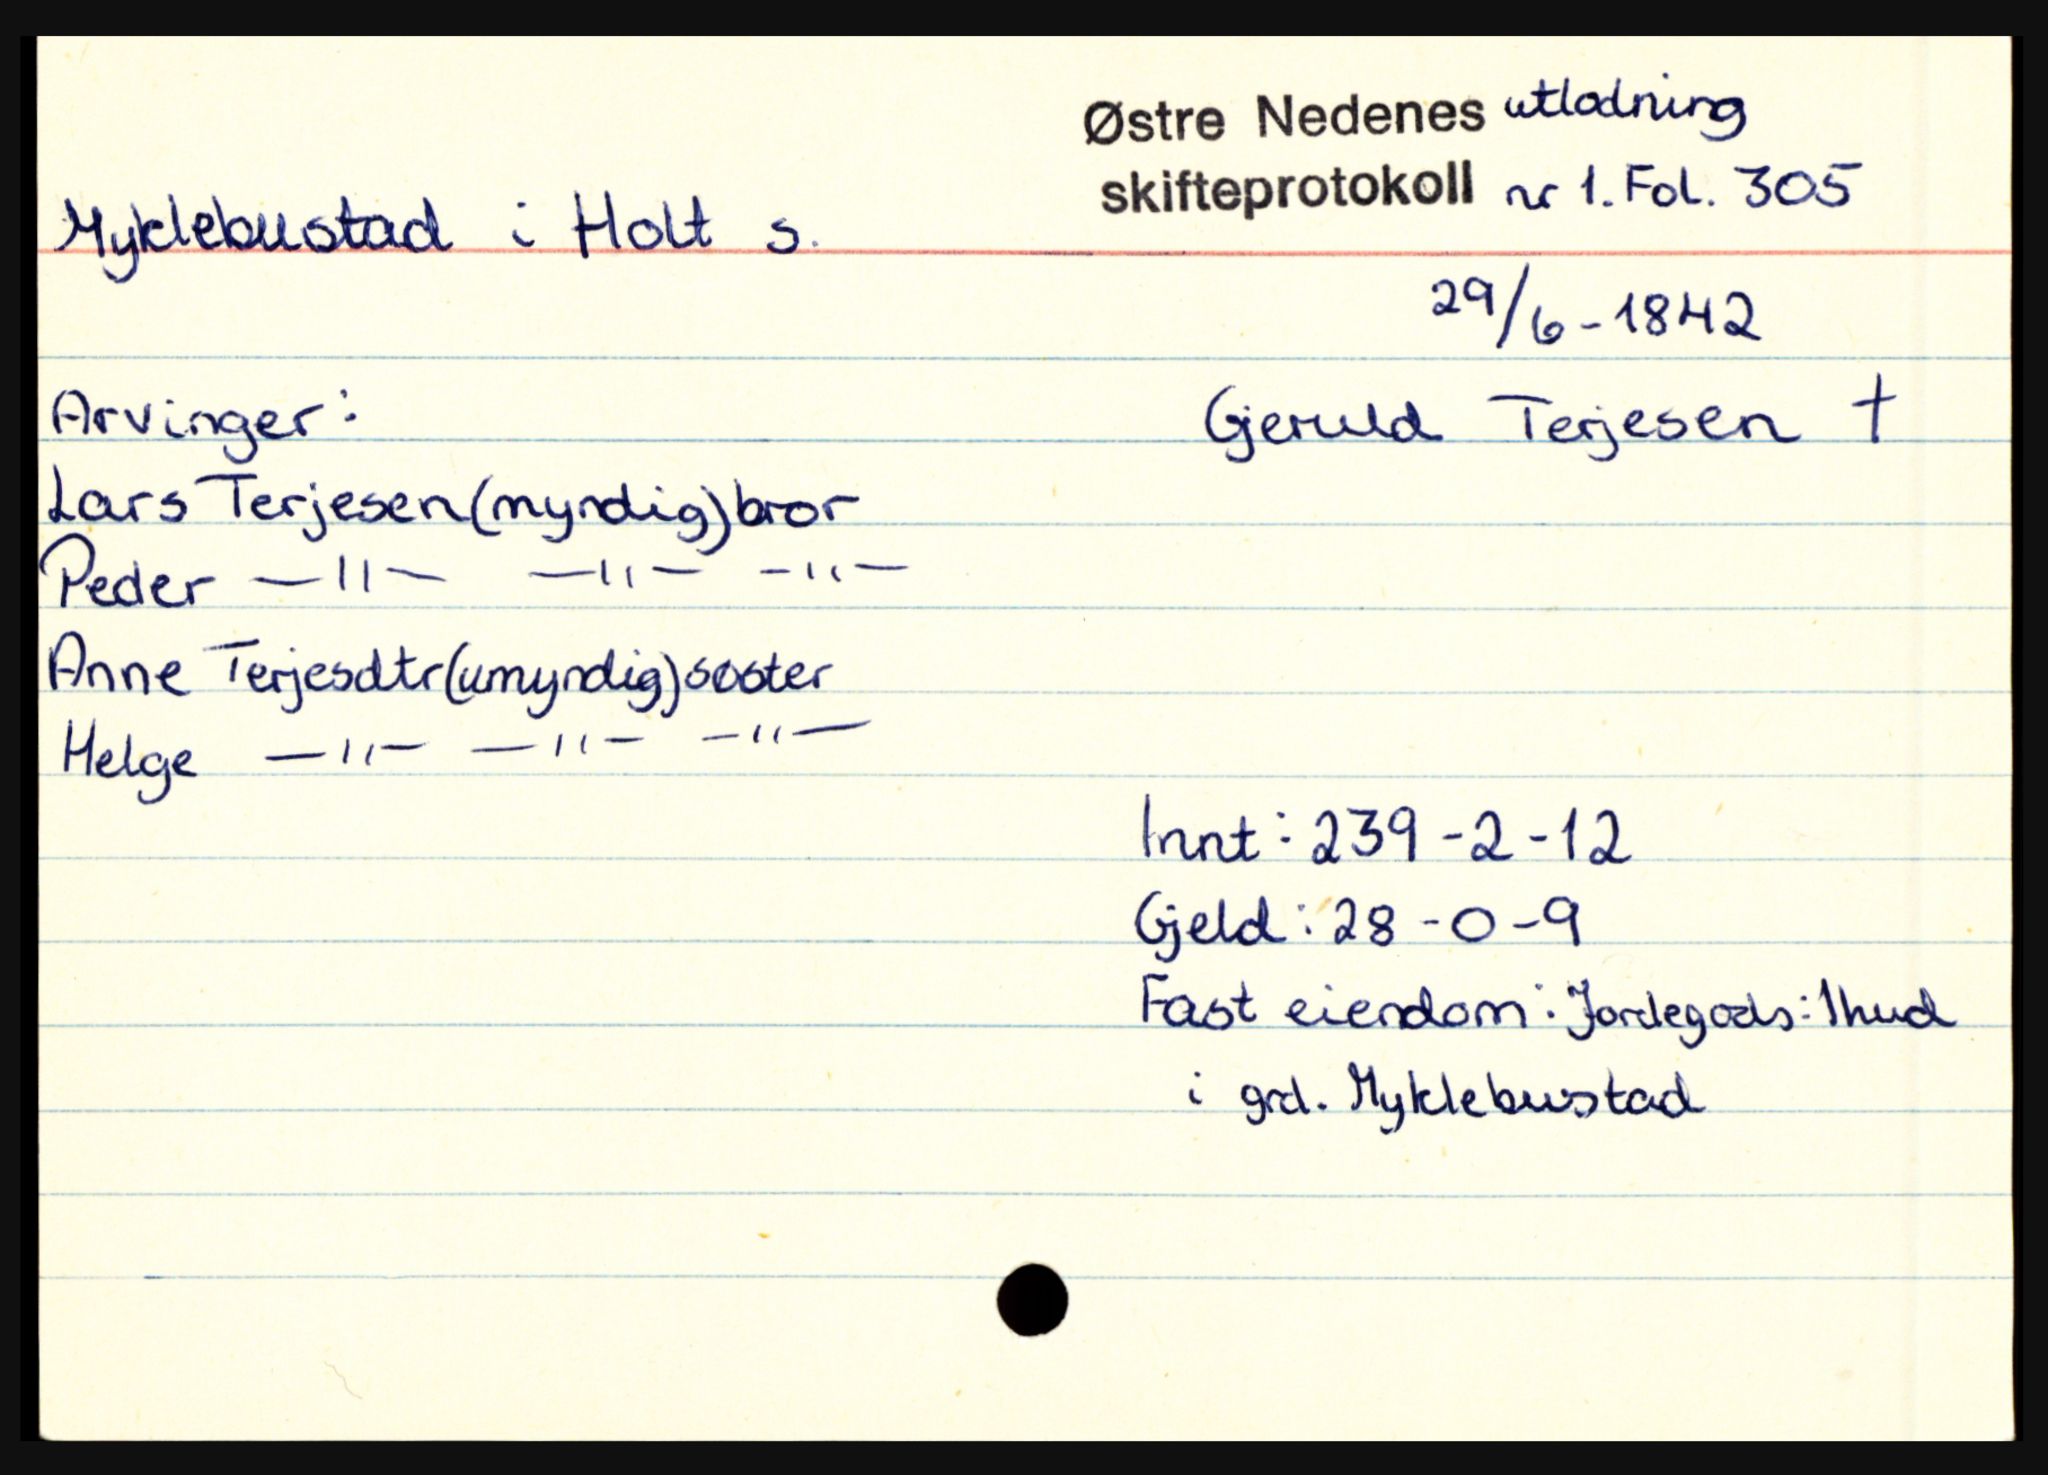 Østre Nedenes utlodning
skifteprotokoll nr 1. Fol. 305
Myklebustad i Holt s.
29/6-1842
Arvinger:
Gjeruld Terjesen †
Lars Terjesen (myndig) bror
Peder —"— —"— —"—
Anne Terjesdtr (umyndig) søster
Helge —"— —"— —"—
Innt: 239-2-12
Gjeld: 28-0-9
Fast eiendom: Jordegods: 1 hud
i grd. Myklebustad